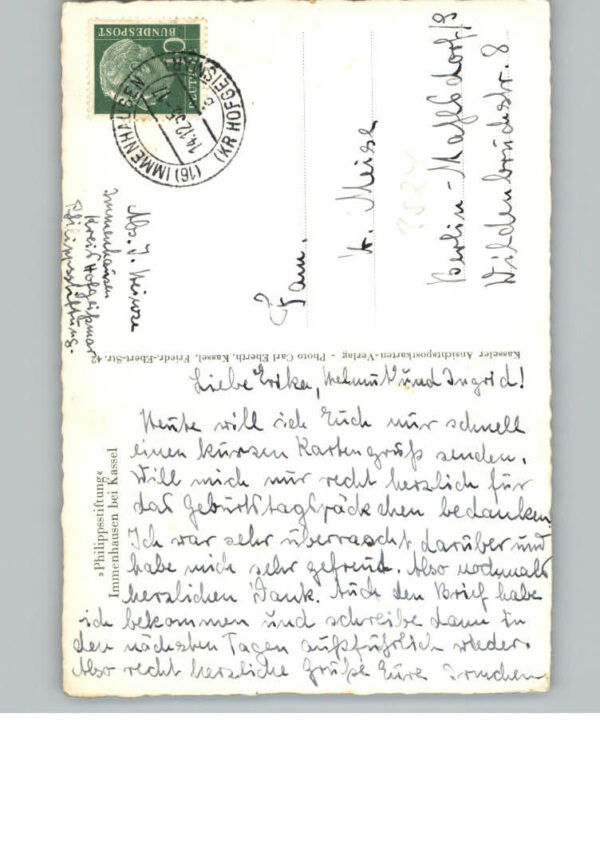 Liebe Erika, Helmut und Ingrid!
Heute will ich Euch nur schnell
einen kurzen Kartengruß senden.
Will mich nur recht herzlich für
das Geburtstagspäckchen bedanken
Ich war sehr überrascht darüber und
habe mich sehr gefreut. Also nochmals
herzlichen Dank. Auch den Brief habe
ich bekommen und schreibe dann in
den nächsten Tagen ausführlich wieder.
Also recht herzliche Grüße Eure Irmchen
»Philippsstiftung«
Immenhausen bei Kassel
Kasseler Ansichtspostkarten-Verlag - Photo Carl Eberth, Kassel, Friedr.-Ebert-Str. 42
Abs. I.
Immenhausen
Kreis Hofgeismar
Philippsstiftung.
Fam.
H. Meise
Berlin-Mahlsdorf/S
Wildenbruchstr. 8
DEUTSCHE
BUNDESPOST
(16) IMMENHAUSEN
14.12.55-17
(KR HOFGEISMAR)